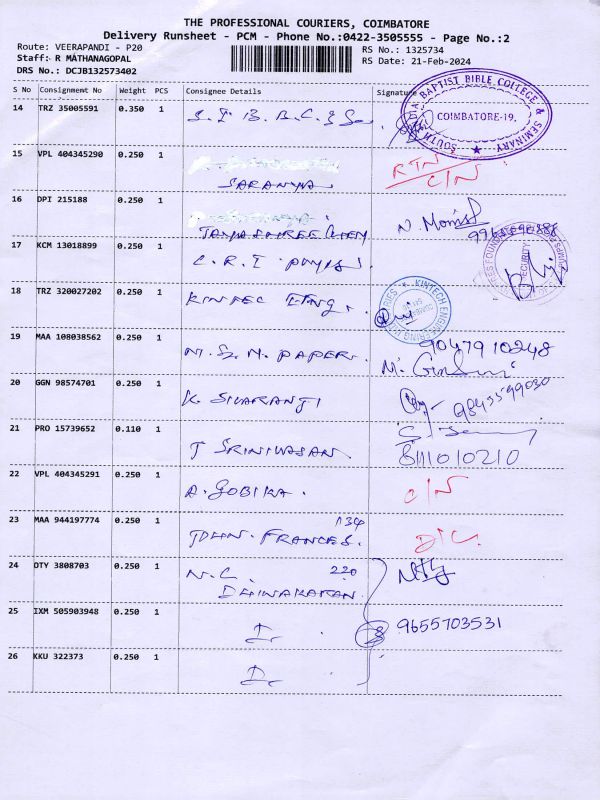 THE PROFESSIONAL COURIERS, COIMBATORE
Delivery Runsheet - PCM - Phone No.:0422-3505555 - Page No.:2
Route: VEERAPANDI - P20
RS No.: 1325734
Staff: R MATHANAGOPAL
RS Date: 21-Feb-2024
DRS No.: DCJB132573402
S No Consignment No Weight PCS Consignee Details Signature
SOUTH INDIA BAPTIST BIBLE COLLEGE & SEMINARY
COIMBATORE-19.
14 TRZ 35005591 0.350 1 S. I. B. B. C. & S
15 VPL 404345290 0.250 1
SARANYA RTN C/N
16 DPI 215188 0.250 1
N.
17 KCM 13018899 0.250 1 C. R. I PUMPS
SECURITY
18 TRZ 320027202 0.250 1 KINTEC ENG.
KINTECH ENGINEERING
19 MAA 108038562 0.250 1 M. S. M. PAPER. 9047910248
20 GGN 98574701 0.250 1 K. SIVARANJI
21 PRO 15739652 0.110 1 T SRINIVASAN. 8111010210
22 VPL 404345291 0.250 1 A. GOBIKA. C/N
23 MAA 944197774 0.250 1 134
JOHN. FRANCES. D/C.
24 DTY 3808703 0.250 1 N. C. 220
DHINAKARAN.
25 IXM 505903948 0.250 1 9655703531
26 KKU 322373 0.250 1